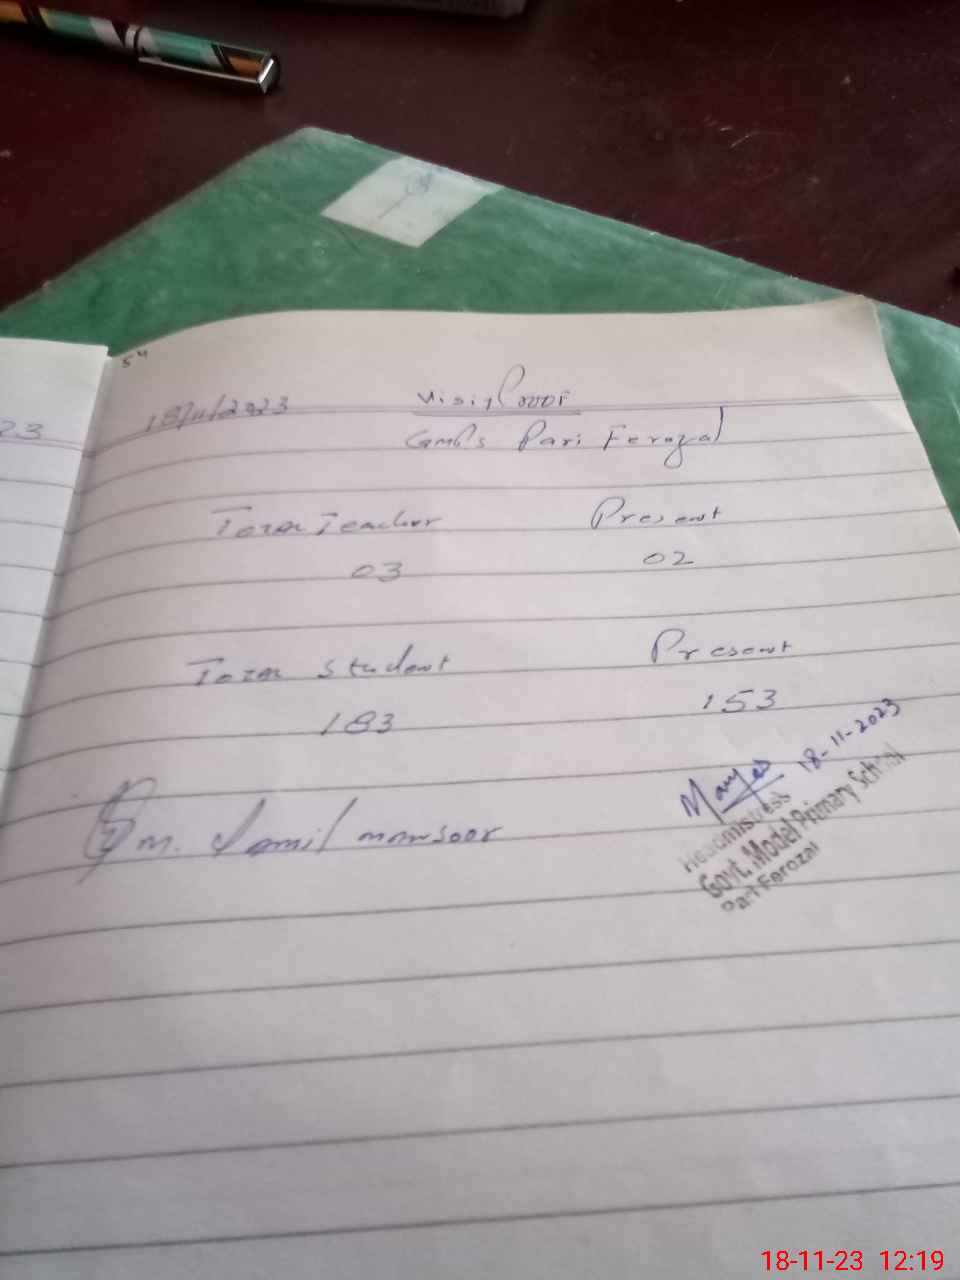 54
23
18/11/2023 Visit Proof
GMPS Pari Ferozal
Total Teacher Present
03 02
Total Student Present
183 153
18-11-2023
M. Jamil mansoor
Headmistress
Govt. Model Primary School
Pari Ferozal
18-11-23 12:19